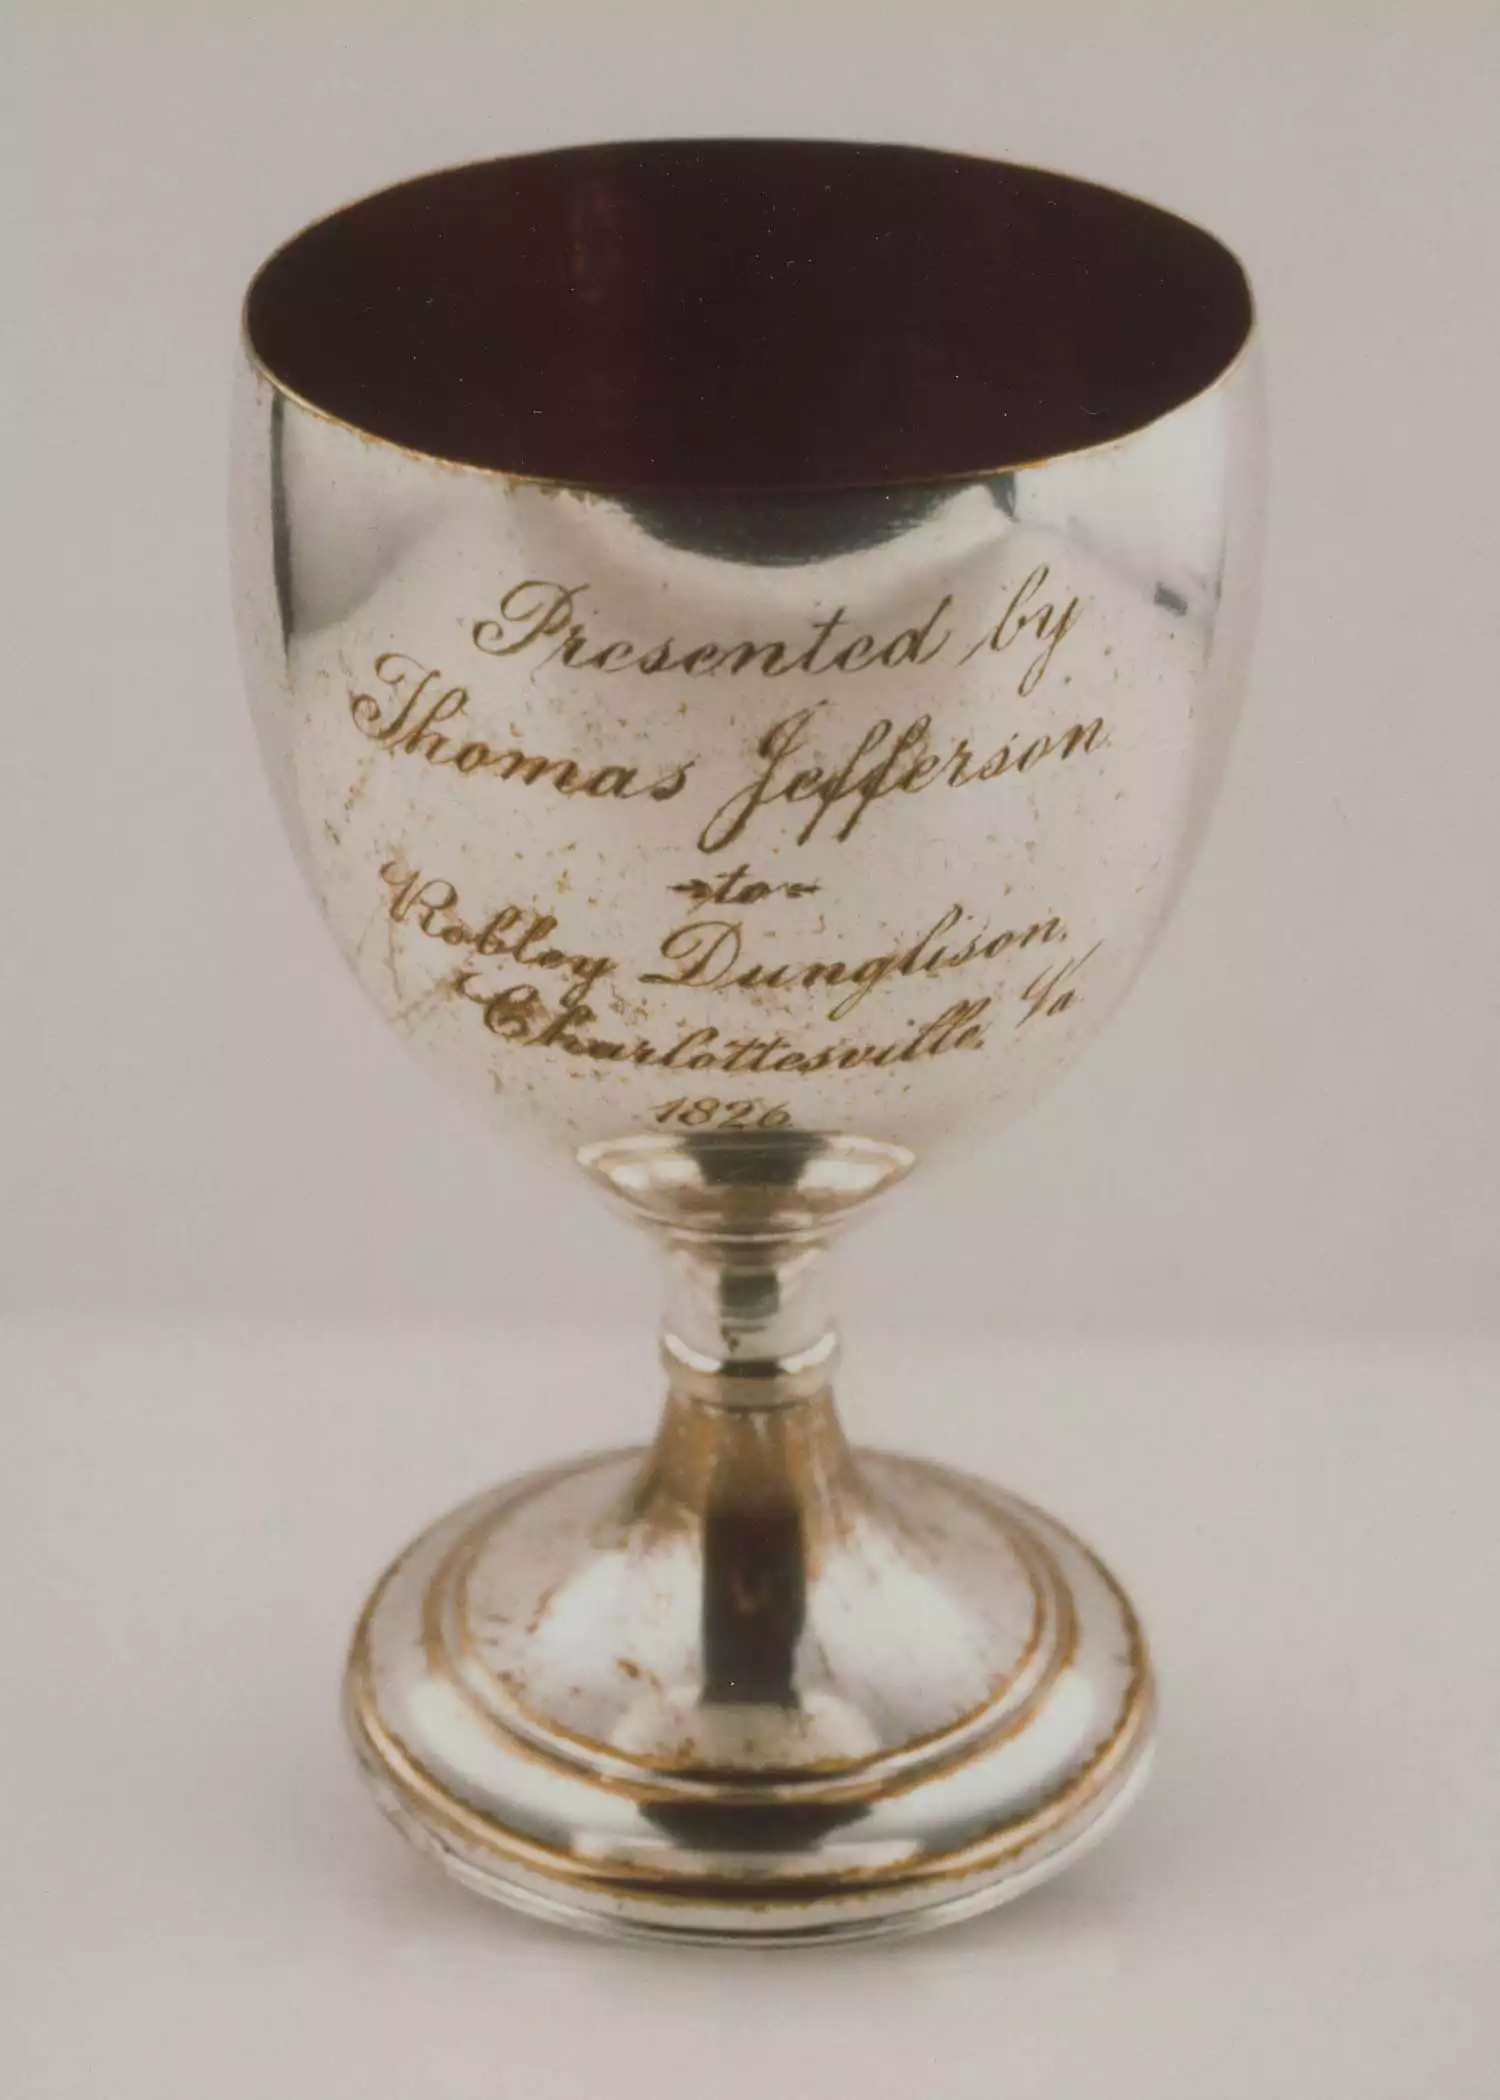 Presented by
Thomas Jefferson
to
Robley Dunglison.
Charlottesville, Va
1826.